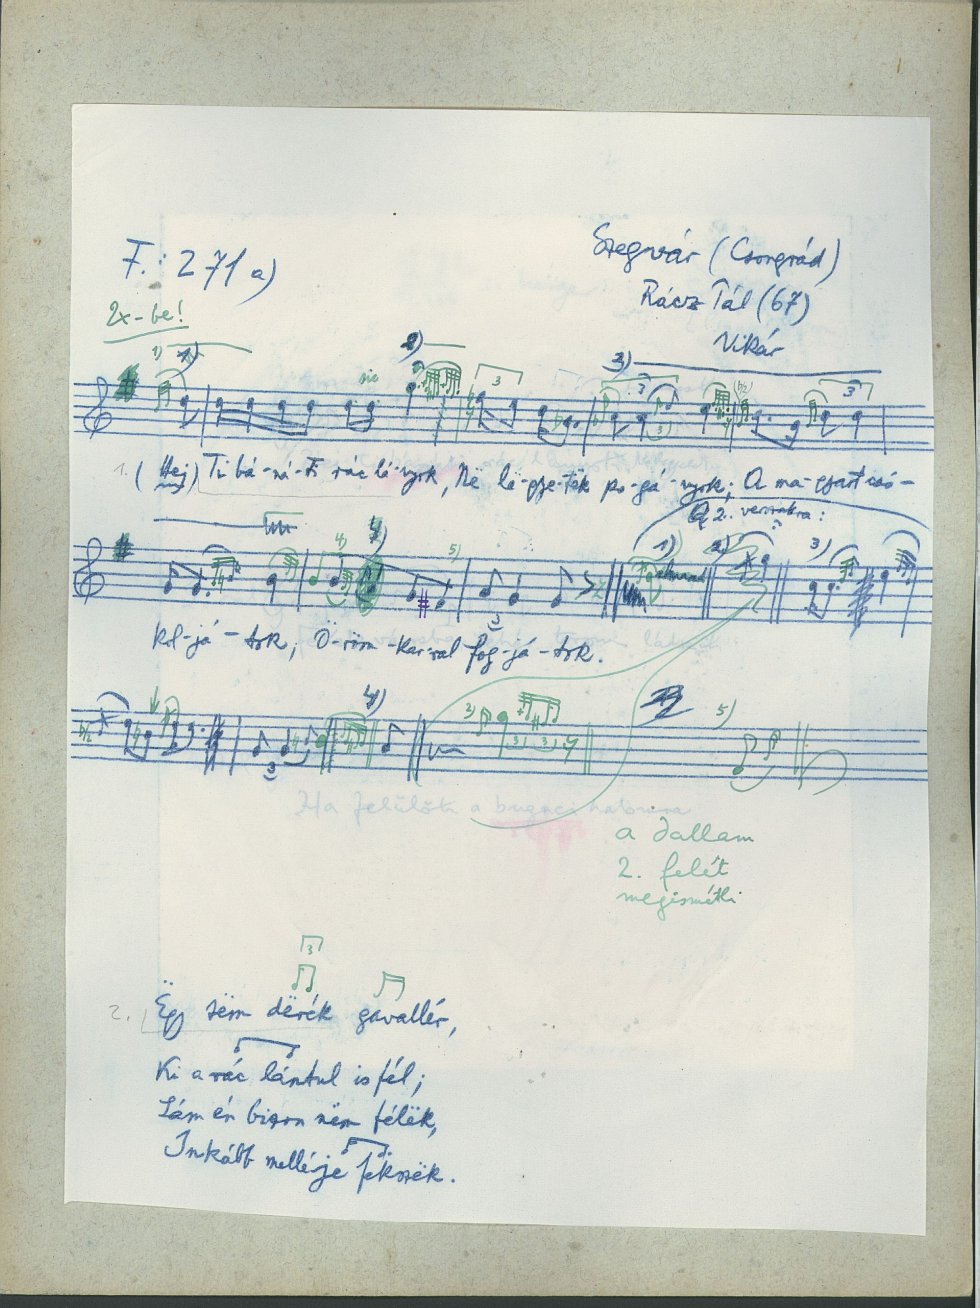 F.: 271 a)
Szegvár (Csongrád)
Rácz Pál (67)
Vikár
2x-be!
1) 1) 2) 3)
sic 3 3 3
1. (Hej) Ti bá-ná-ti rác lá-nyok, Ne lé-gye-tek po-gá-nyok; A ma-gyart csó-
2. versszakra:
4) 5) 1) 2) 3)
kol-já-tok, Ö-röm-kar-ral fog-já-tok.
4) 2) 5)
a dallam
2. felét
megismétli
3
2. Ëgy sëm dërék gavallér,
Ki a rác lántul is fél;
Lám én bizon nëm félëk,
Inkább mellérje fekszëk.